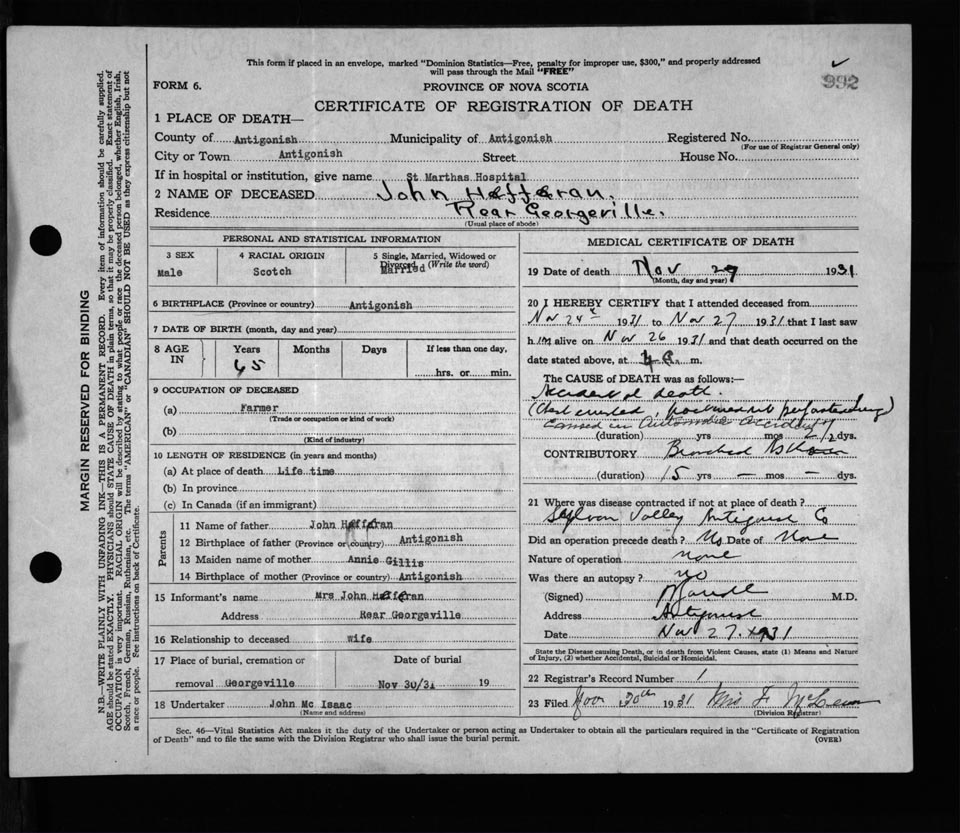 This form if placed in an envelope, marked "Dominion Statistics—Free, penalty for improper use, $300," and properly addressed
will pass through the Mail "FREE"
992
FORM 6.
PROVINCE OF NOVA SCOTIA
CERTIFICATE OF REGISTRATION OF DEATH
1 PLACE OF DEATH—
County of Antigonish Municipality of Antigonish Registered No.
(For use of Registrar General only)
City or Town Antigonish Street House No.
If in hospital or institution, give name St Marthas Hospital
2 NAME OF DECEASED John Hefferan.
Residence Rear Georgeville.
(Usual place of abode)
PERSONAL AND STATISTICAL INFORMATION
3 SEX
Male
4 RACIAL ORIGIN
Scotch
5 Single, Married, Widowed or
Divorced (Write the word)
Married
6 BIRTHPLACE (Province or country) Antigonish
7 DATE OF BIRTH (month, day and year)
8 AGE IN
Years Months Days If less than one day,
65 hrs. or min.
9 OCCUPATION OF DECEASED
(a) Farmer
(Trade or occupation or kind of work)
(b)
(Kind of industry)
10 LENGTH OF RESIDENCE (in years and months)
(a) At place of death Life time
(b) In province
(c) In Canada (if an immigrant)
Parents
11 Name of father John Hefferan
12 Birthplace of father (Province or country) Antigonish
13 Maiden name of mother Annie Gillis
14 Birthplace of mother (Province or country) Antigonish
15 Informant's name Mrs John Hefferan
Address Rear Georgeville
16 Relationship to deceased wife
17 Place of burial, cremation or Date of burial
removal Georgeville Nov 30/31 19
18 Undertaker John Mc Isaac
(Name and address)
MEDICAL CERTIFICATE OF DEATH
19 Date of death Nov 27 1931
(Month, day and year)
20 I HEREBY CERTIFY that I attended deceased from
Nov 24 1931 to Nov 27 1931 that I last saw
him alive on Nov 26 1931 and that death occurred on the
date stated above, at 4 a. m.
The CAUSE of DEATH was as follows:—
Accidental death.
(Chest crushed,
caused in Automobile accident)
(duration) yrs mos 2 1/2 dys.
CONTRIBUTORY Bronchial Asthma
(duration) 15 yrs — mos — dys.
21 Where was disease contracted if not at place of death?
Sylvan Valley Antigonish Co
Did an operation precede death? No Date of None
Nature of operation none
Was there an autopsy? no
(Signed) M.D.
Address Antigonish
Date Nov 27. 1931
State the Disease causing Death, or in death from Violent Causes, state (1) Means and Nature
of Injury, (2) whether Accidental, Suicidal or Homicidal.
22 Registrar's Record Number 1
23 Filed Nov 30th 1931 Mrs F. McLean
(Division Registrar)
Sec. 46—Vital Statistics Act makes it the duty of the Undertaker or person acting as Undertaker to obtain all the particulars required in the "Certificate of Registration
of Death" and to file the same with the Division Registrar who shall issue the burial permit.
(OVER)
MARGIN RESERVED FOR BINDING
N.B.—WRITE PLAINLY WITH UNFADING INK—THIS IS A PERMANENT RECORD. Every item of information should be carefully supplied.
AGE should be stated EXACTLY. PHYSICIANS should STATE CAUSE OF DEATH in plain terms, so that it may be properly classified. Exact statement of
OCCUPATION is very important. RACIAL ORIGIN will be described by stating to what people or race the deceased person belonged, whether English, Irish,
Scotch, French, German, Russian, Ruthenian, etc. The terms "AMERICAN" or "CANADIAN" SHOULD NOT BE USED as they express citizenship but not
a race or people. See instructions on back of Certificate.